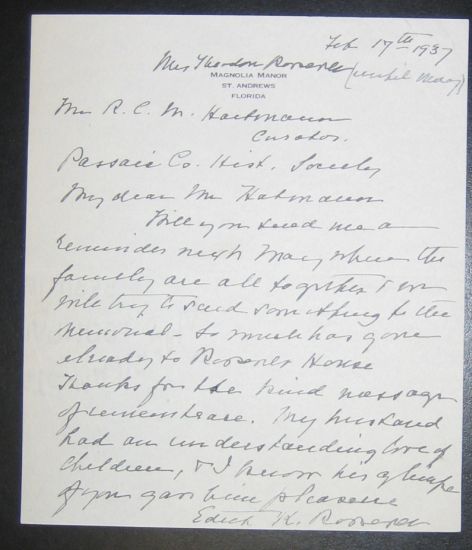 Feb 17th 1937
Mrs Theodore Roosevelt (until May)
MAGNOLIA MANOR
ST. ANDREWS
FLORIDA
Mr R. C. M. Hartmann
Curator.
Passaic Co. Hist. Society
My dear Mr Hatmann
Will you send me a
reminder next May when the
family are all together & we
will try to send something to the
memorial - so much has gone
already to Roosevelt House
Thanks for the kind message
of remembrance. My husband
had an understanding love of
children, & I know his glimpse
of you gave him pleasure
Edith K. Roosevelt